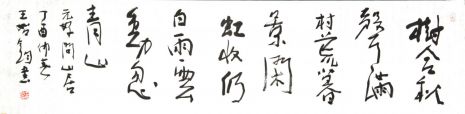 樹合秋
聲滿
村荒暮
景閑
虹收仍
白雨雲
動忽
青山
元好問山居
丁酉仲春
王書